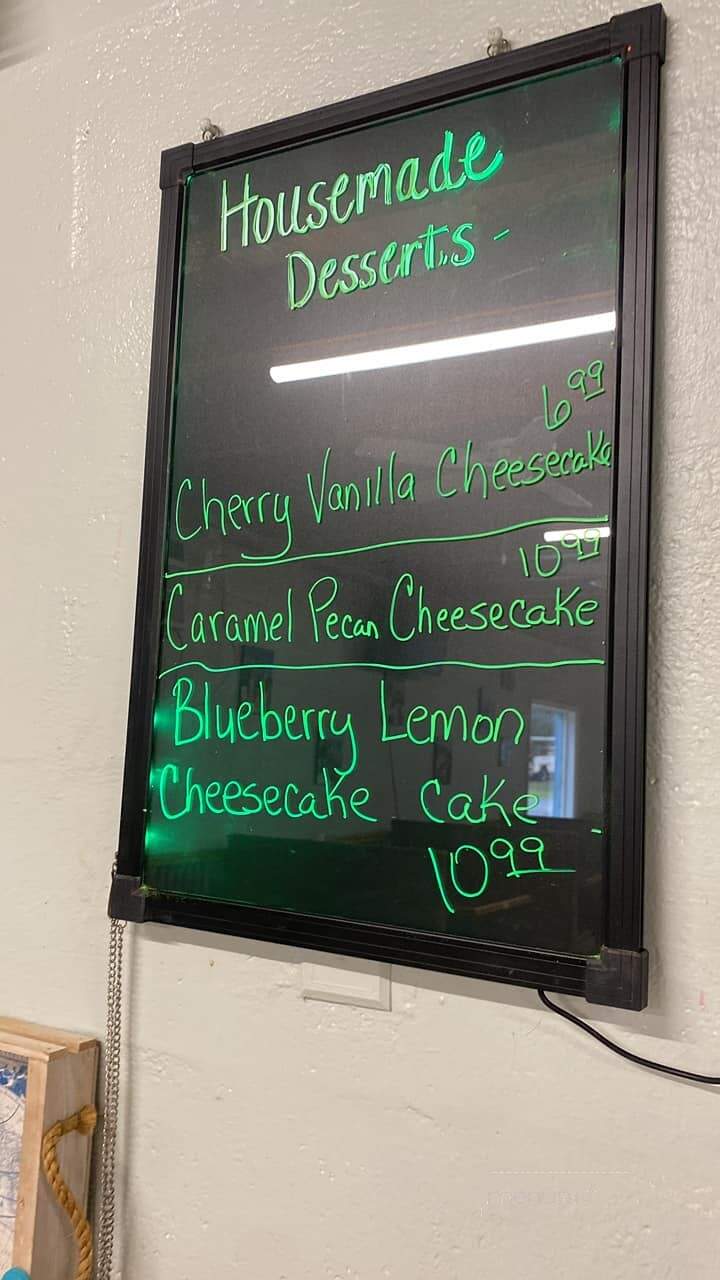 Housemade
Desserts -
6 99
Cherry Vanilla Cheesecake
10 99
Caramel Pecan Cheesecake
Blueberry Lemon
Cheesecake cake
10 99